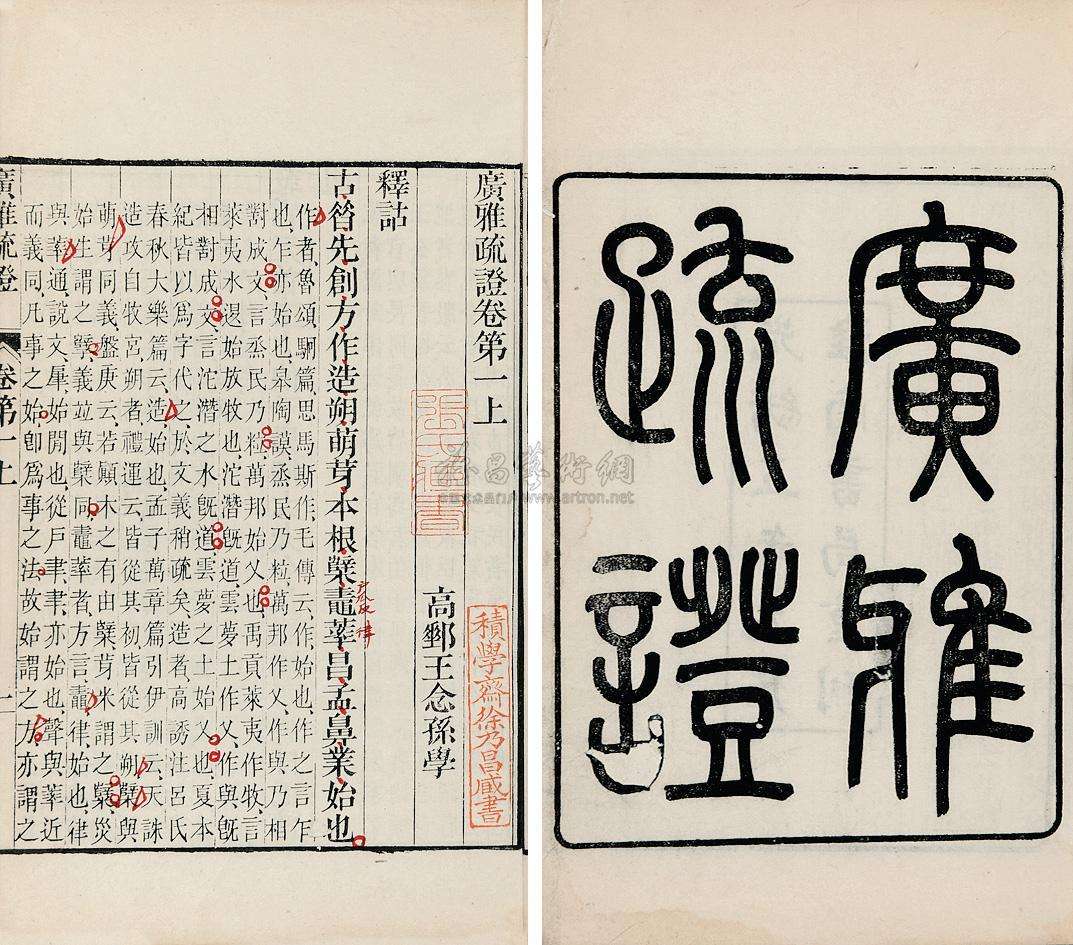 廣雅
疏證
廣雅疏證卷第一上
積學齋徐乃昌藏書
高郵王念孫學
釋詁
古昝先創方作造朔萌芽本根櫱鼃䔞昌孟鼻業始也
作者魯頌駉篇思馬斯作毛傳云作始也作之言乍
也乍亦始也皋陶謨烝民乃粒萬邦作乂作與乃相
對成文言烝民乃粒萬邦始乂也禹貢萊夷作牧言
萊夷水退始放牧也沱潛旣道雲夢土作乂作與旣
相對成文言沱潛之水旣道雲夢之土始乂也夏本
紀皆以爲字代之於文義稍疏矣造者高誘注呂氏
春秋大樂篇云造始也孟子萬章篇引伊訓云天誅
造攻自牧宮朔者禮運云皆從其初皆從其朔櫱與
萌芽同義盤庚云若顚木之有由櫱芽米謂之櫱災
始生謂之孼義竝與櫱同鼃䔞者方言鼃律始也律
與䔞通說文肁始開也從戶聿聿亦始也聲與䔞近
而義同凡事之始卽爲事之法故始謂之方亦謂之
廣雅疏證 卷第一上 一
昌藝術網
www.artron.net